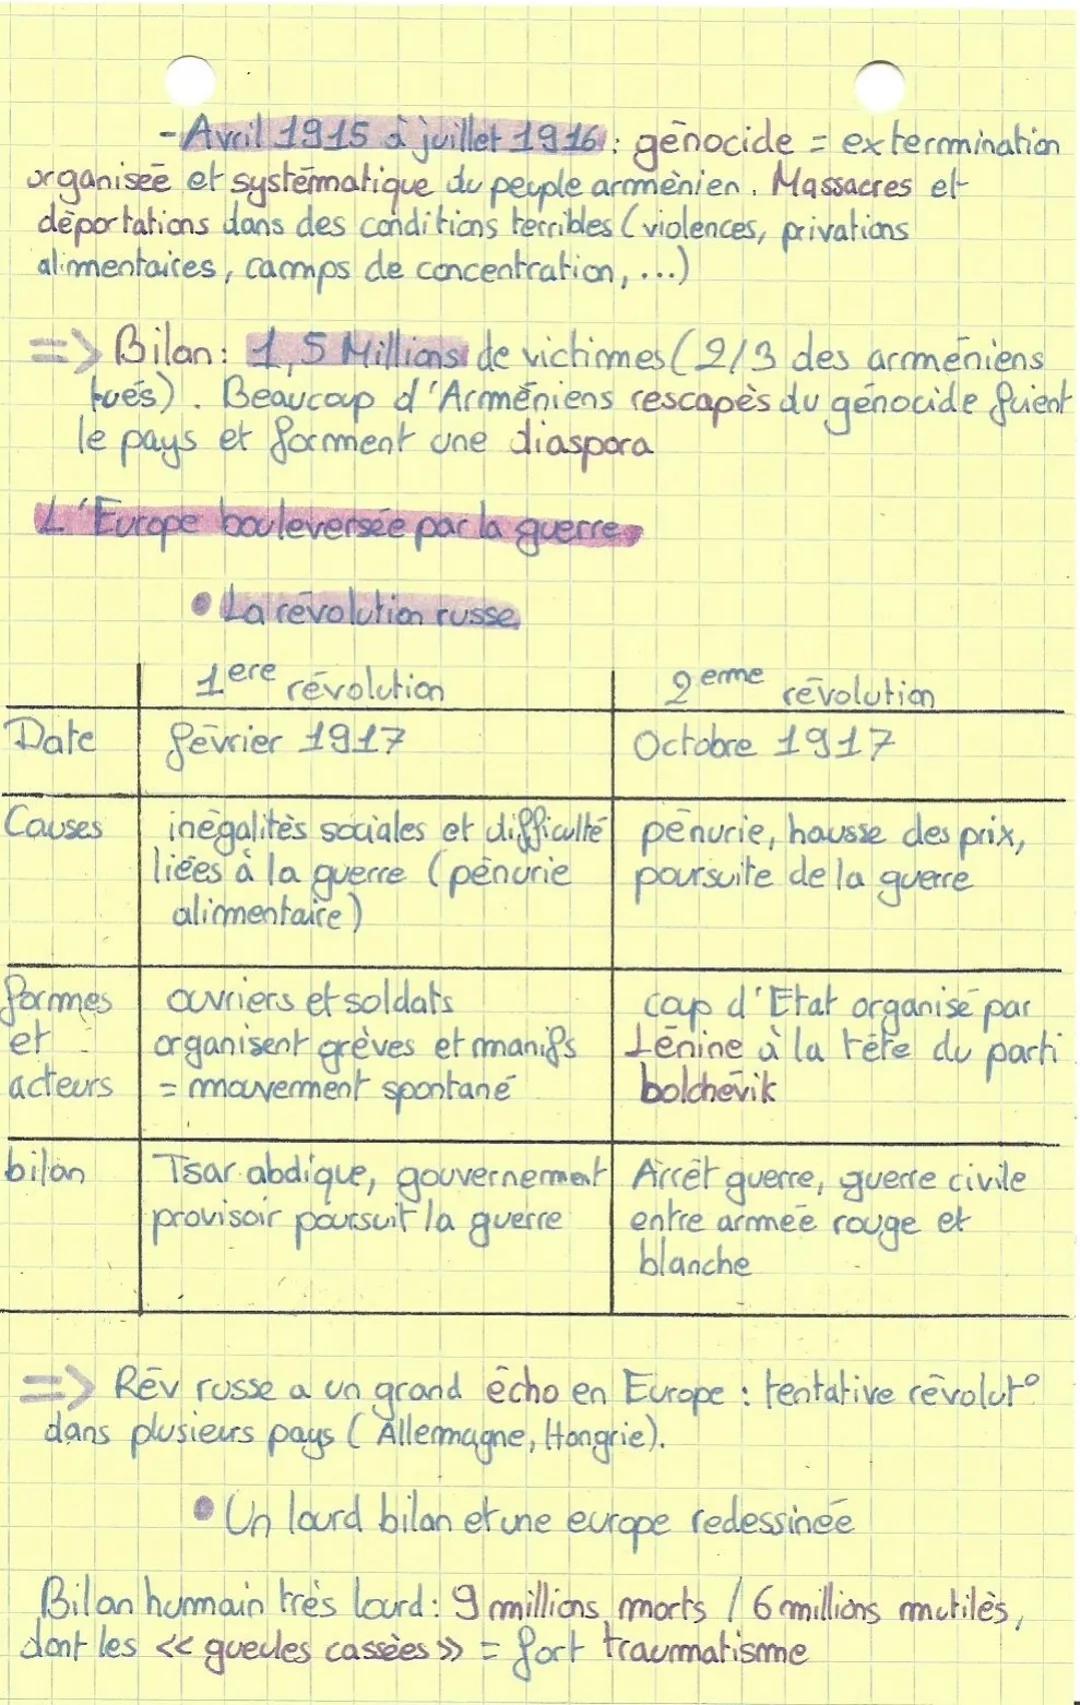 - Avril 1915 à juillet 1916 : génocide = extermination
organisée et systématique du peuple arménien. Massacres et
déportations dans des conditions terribles (violences, privations
alimentaires, camps de concentration, ...)
=> Bilan : 1,5 Millions de victimes (2/3 des arméniens
tués). Beaucoup d'Arméniens rescapés du génocide fuient
le pays et forment une diaspora
L'Europe bouleversée par la guerre
• La révolution russe
1ere révolution 2eme révolution
Date février 1917 Octobre 1917
Causes inégalités sociales et difficulté pénurie, hausse des prix,
liées à la guerre (pénurie poursuite de la guerre
alimentaire)
formes ouvriers et soldats coup d'Etat organisé par
et organisent grèves et manifs Lénine à la tête du parti
acteurs = mouvement spontané bolchévik
bilan Tsar abdique, gouvernement Arrêt guerre, guerre civile
provisoir poursuit la guerre entre armée rouge et
blanche
=> Rév russe a un grand écho en Europe : tentative révolut°
dans plusieurs pays (Allemagne, Hongrie).
• Un lourd bilan et une europe redessinée
Bilan humain très lourd : 9 millions morts / 6 millions mutilés,
dont les << gueules cassées >> = fort traumatisme